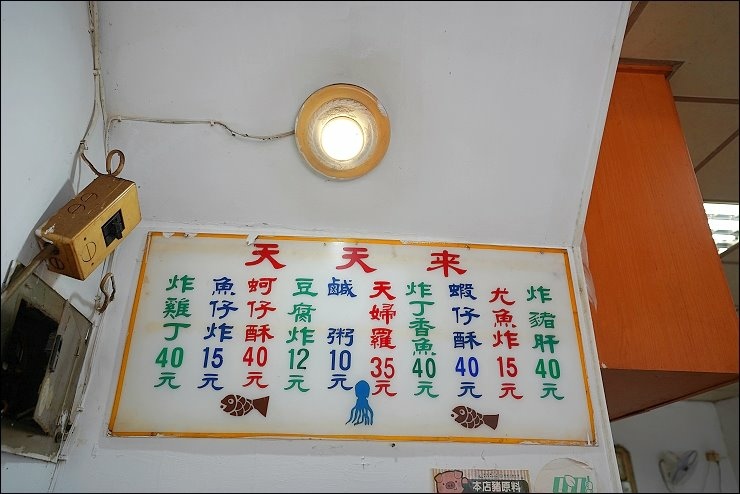 天天来
炸豬肝40元
尤魚炸15元
蝦仔酥40元
炸丁香魚40元
天婦羅35元
鹹粥10元
豆腐炸12元
蚵仔酥40元
魚仔炸15元
炸雞丁40元
本店豬原料